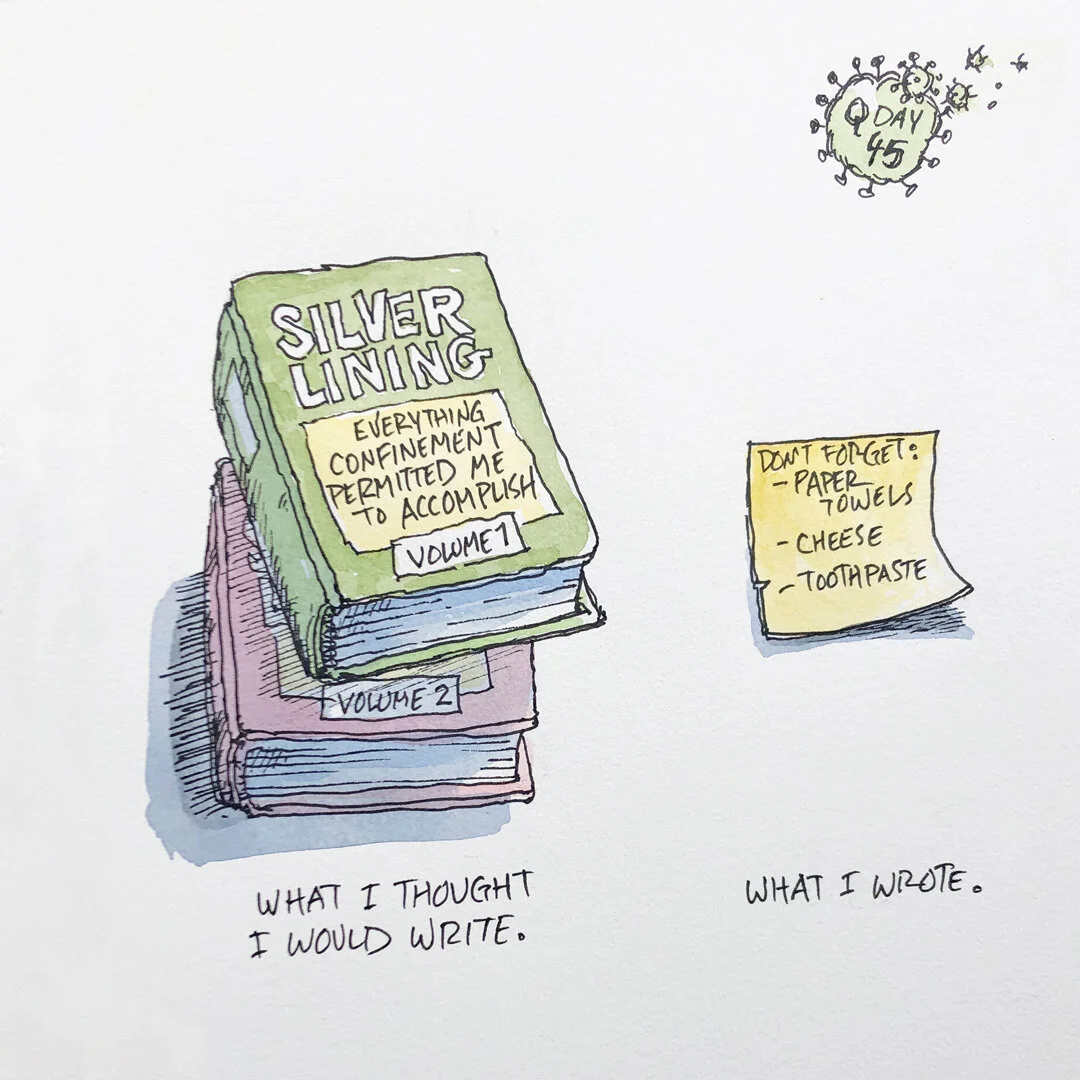 Q DAY
45
SILVER
LINING
EVERYTHING
CONFINEMENT
PERMITTED ME
TO ACCOMPLISH
VOLUME 1
VOLUME 2
DON'T FORGET:
- PAPER
TOWELS
- CHEESE
- TOOTHPASTE
WHAT I THOUGHT
I WOULD WRITE.
WHAT I WROTE.